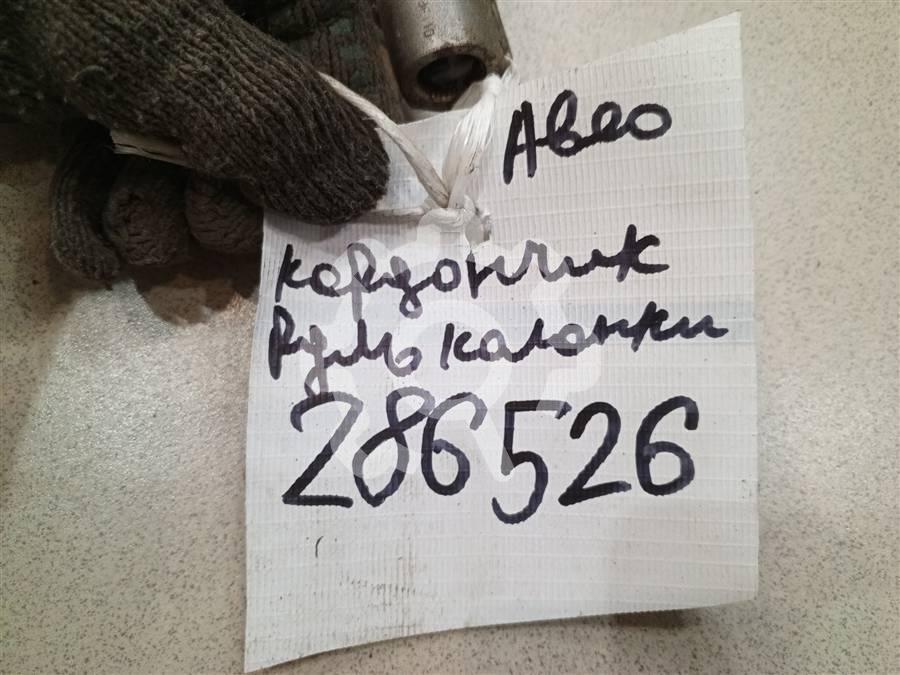 Авео
кардончик
Руль каланки
286526